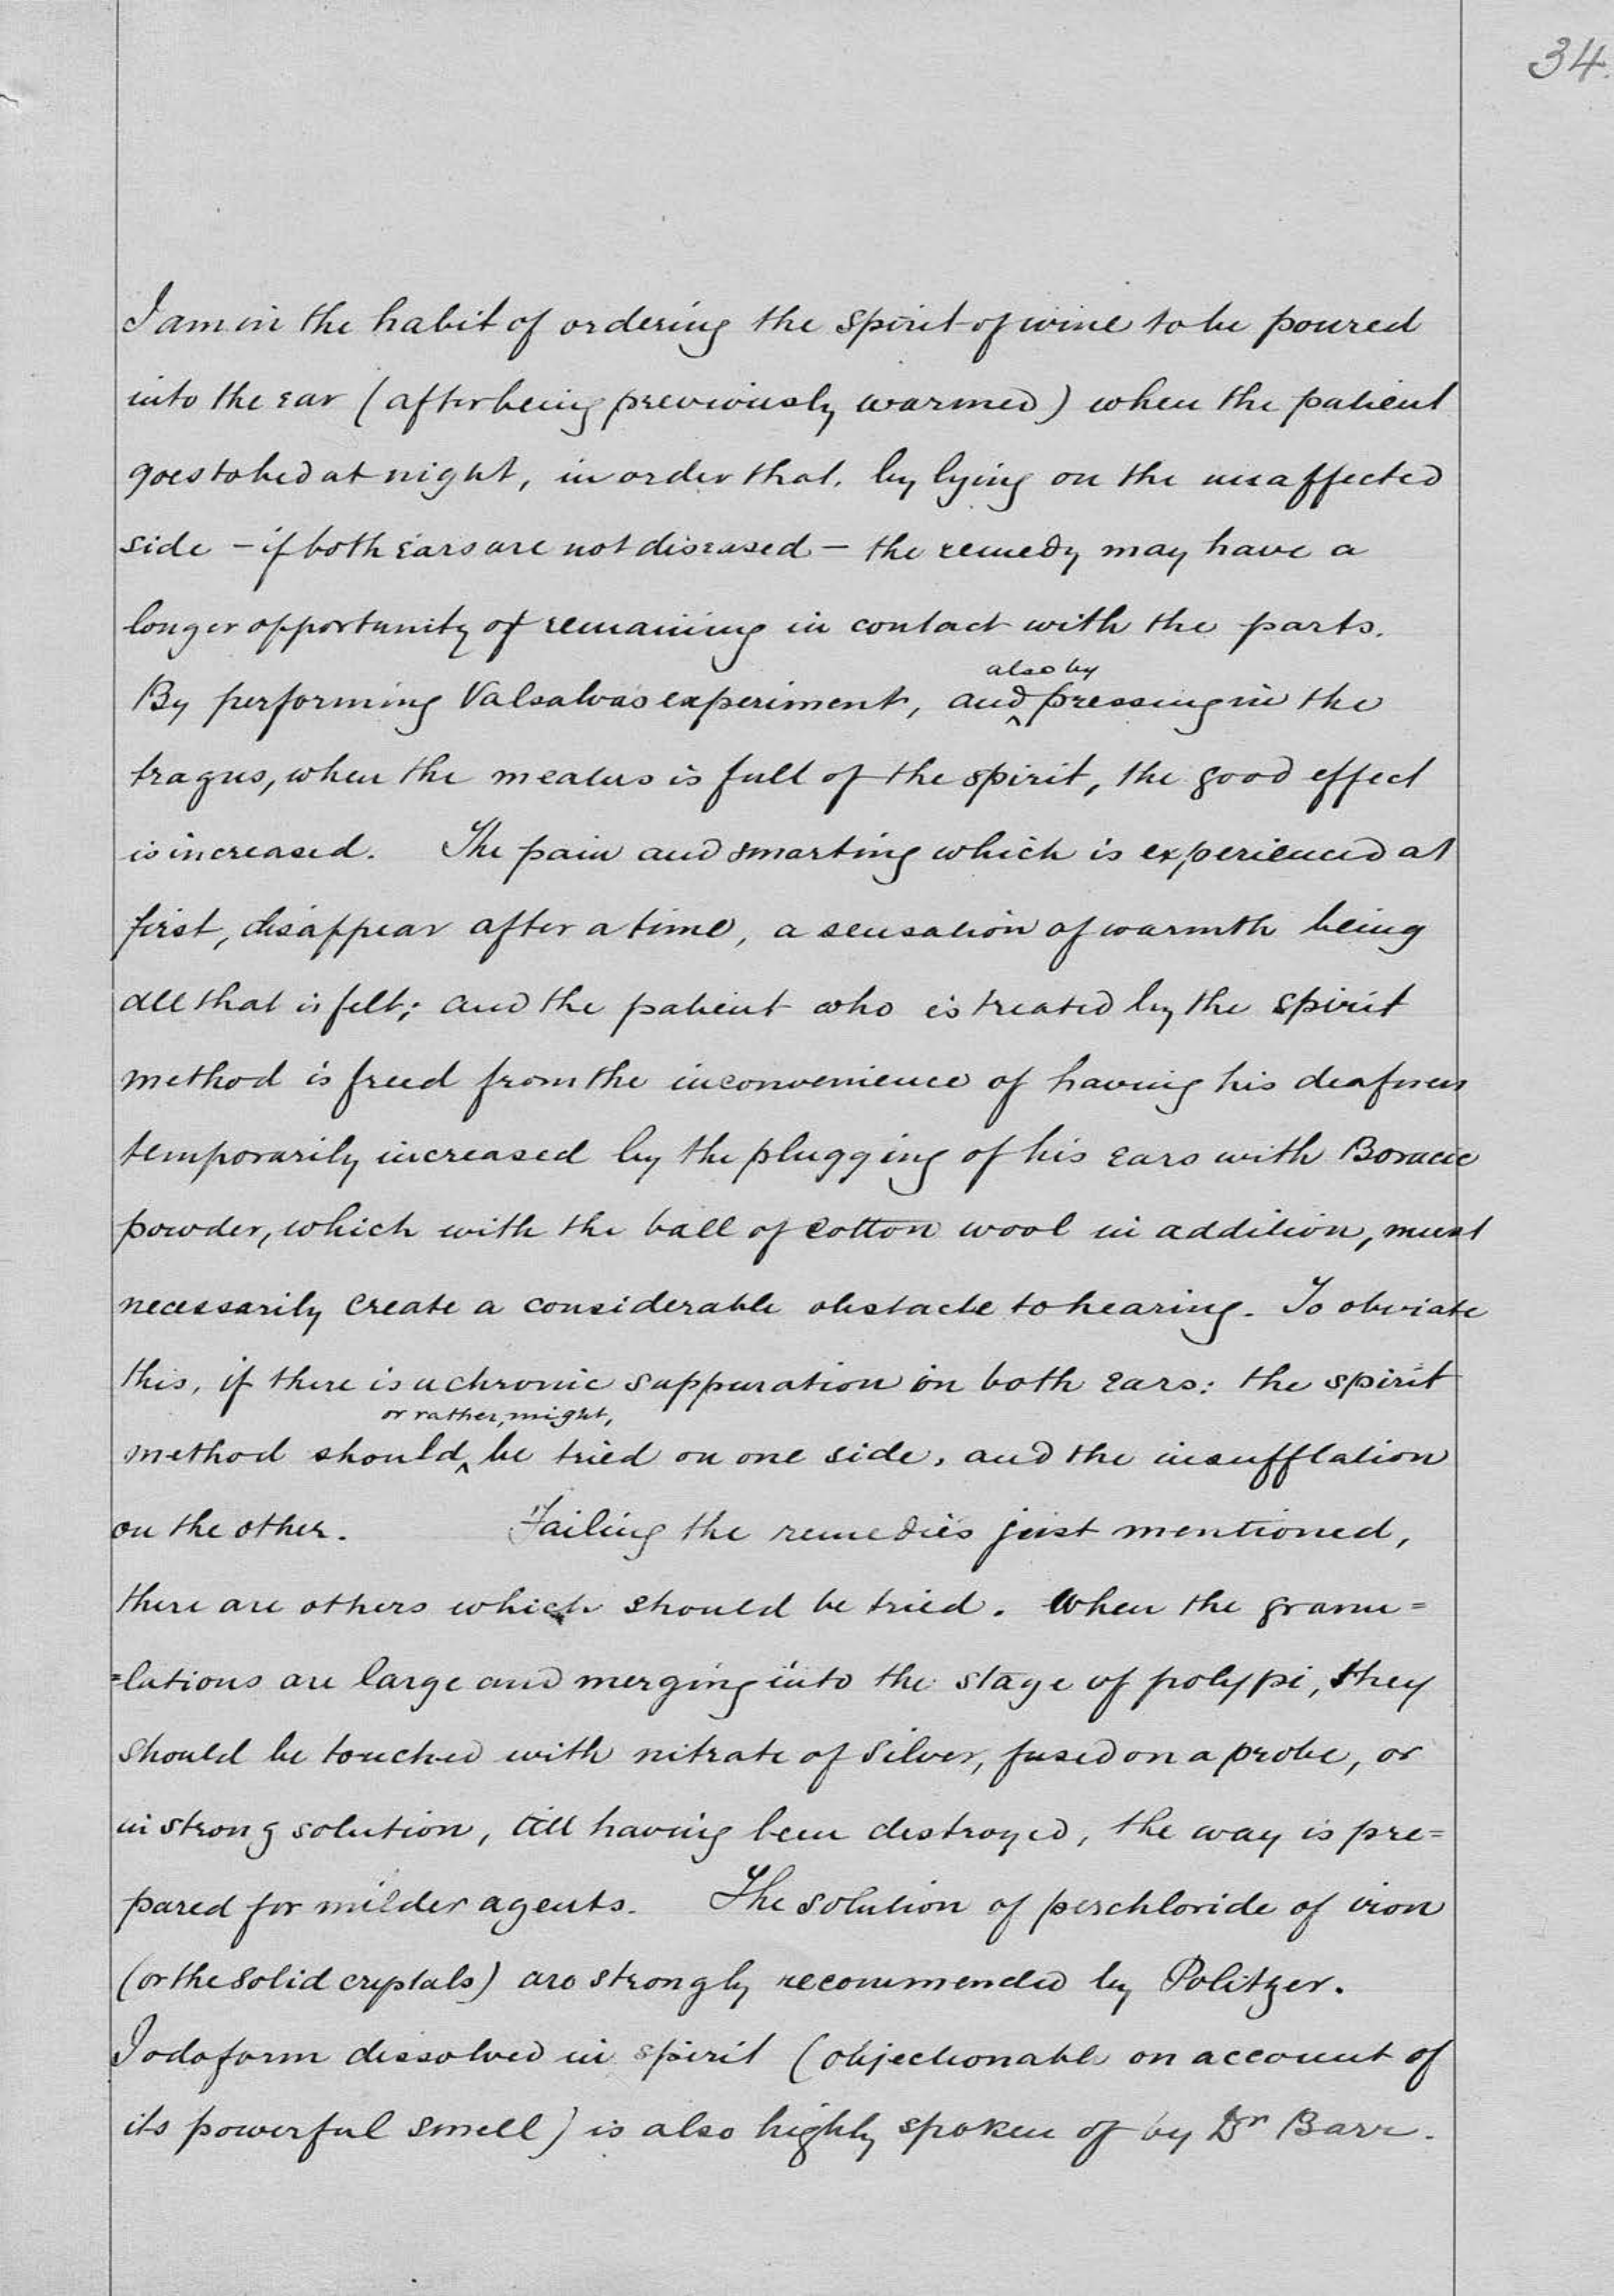 34.
I am in the habit of ordering the spirit of wine to be poured
into the ear (after being previously warmed) when the patient
goes to bed at night, in order that, by lying on the unaffected
side – if both ears are not diseased – the remedy may have a
longer opportunity of remaining in contact with the parts.
also by
By performing Valsalva's experiment, and ^ pressing in the
tragus, when the meatus is full of the spirit, the good effect
is increased. The pain and smarting which is experienced at
first, disappear after a time, a sensation of warmth being
all that is felt; and the patient who is treated by the spirit
method is freed from the inconvenience of having his deafness
temporarily increased by the plugging of his ears with Boracic
powder, which with the ball of cotton wool in addition, must
necessarily create a considerable obstacle to hearing. To obviate
this, if there is a chronic suppuration in both ears: the spirit
or rather, might,
method should ^ be tried on one side, and the insufflation
on the other. Failing the remedies just mentioned,
there are others which should be tried. When the granu=
=lations are large and merging into the stage of polypi, they
should be touched with nitrate of silver, fused on a probe, or
in strong solution, till having been destroyed, the way is pre=
pared for milder agents. The solution of perchloride of iron
(or the solid crystals) are strongly recommended by Politzer.
Iodoform dissolved in spirit (objectionable on account of
its powerful smell) is also highly spoken of by Dr Barr.